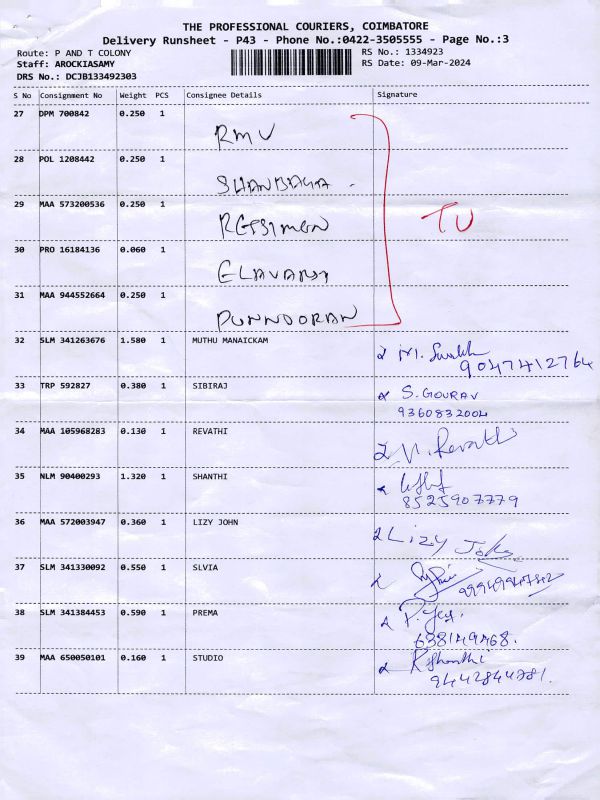 THE PROFESSIONAL COURIERS, COIMBATORE
Delivery Runsheet - P43 - Phone No.:0422-3505555 - Page No.:3
Route: P AND T COLONY RS No.: 1334923
Staff: AROCKIASAMY RS Date: 09-Mar-2024
DRS No.: DCJB133492303
S No Consignment No Weight PCS Consignee Details Signature
27 DPM 700842 0.250 1 RMV
28 POL 1208442 0.250 1 SHANBAGA
29 MAA 573200536 0.250 1
TU
30 PRO 16184136 0.060 1
31 MAA 944552664 0.250 1
32 SLM 341263676 1.580 1 MUTHU MANAICKAM
9047412764
33 TRP 592827 0.380 1 SIBIRAJ S. GOURAV
9360832004
34 MAA 105968283 0.130 1 REVATHI Revathi
35 NLM 90400293 1.320 1 SHANTHI
8525907779
36 MAA 572003947 0.360 1 LIZY JOHN LIZY John
37 SLM 341330092 0.550 1 SLVIA
38 SLM 341384453 0.590 1 PREMA
39 MAA 650050101 0.160 1 STUDIO R. Shanthi